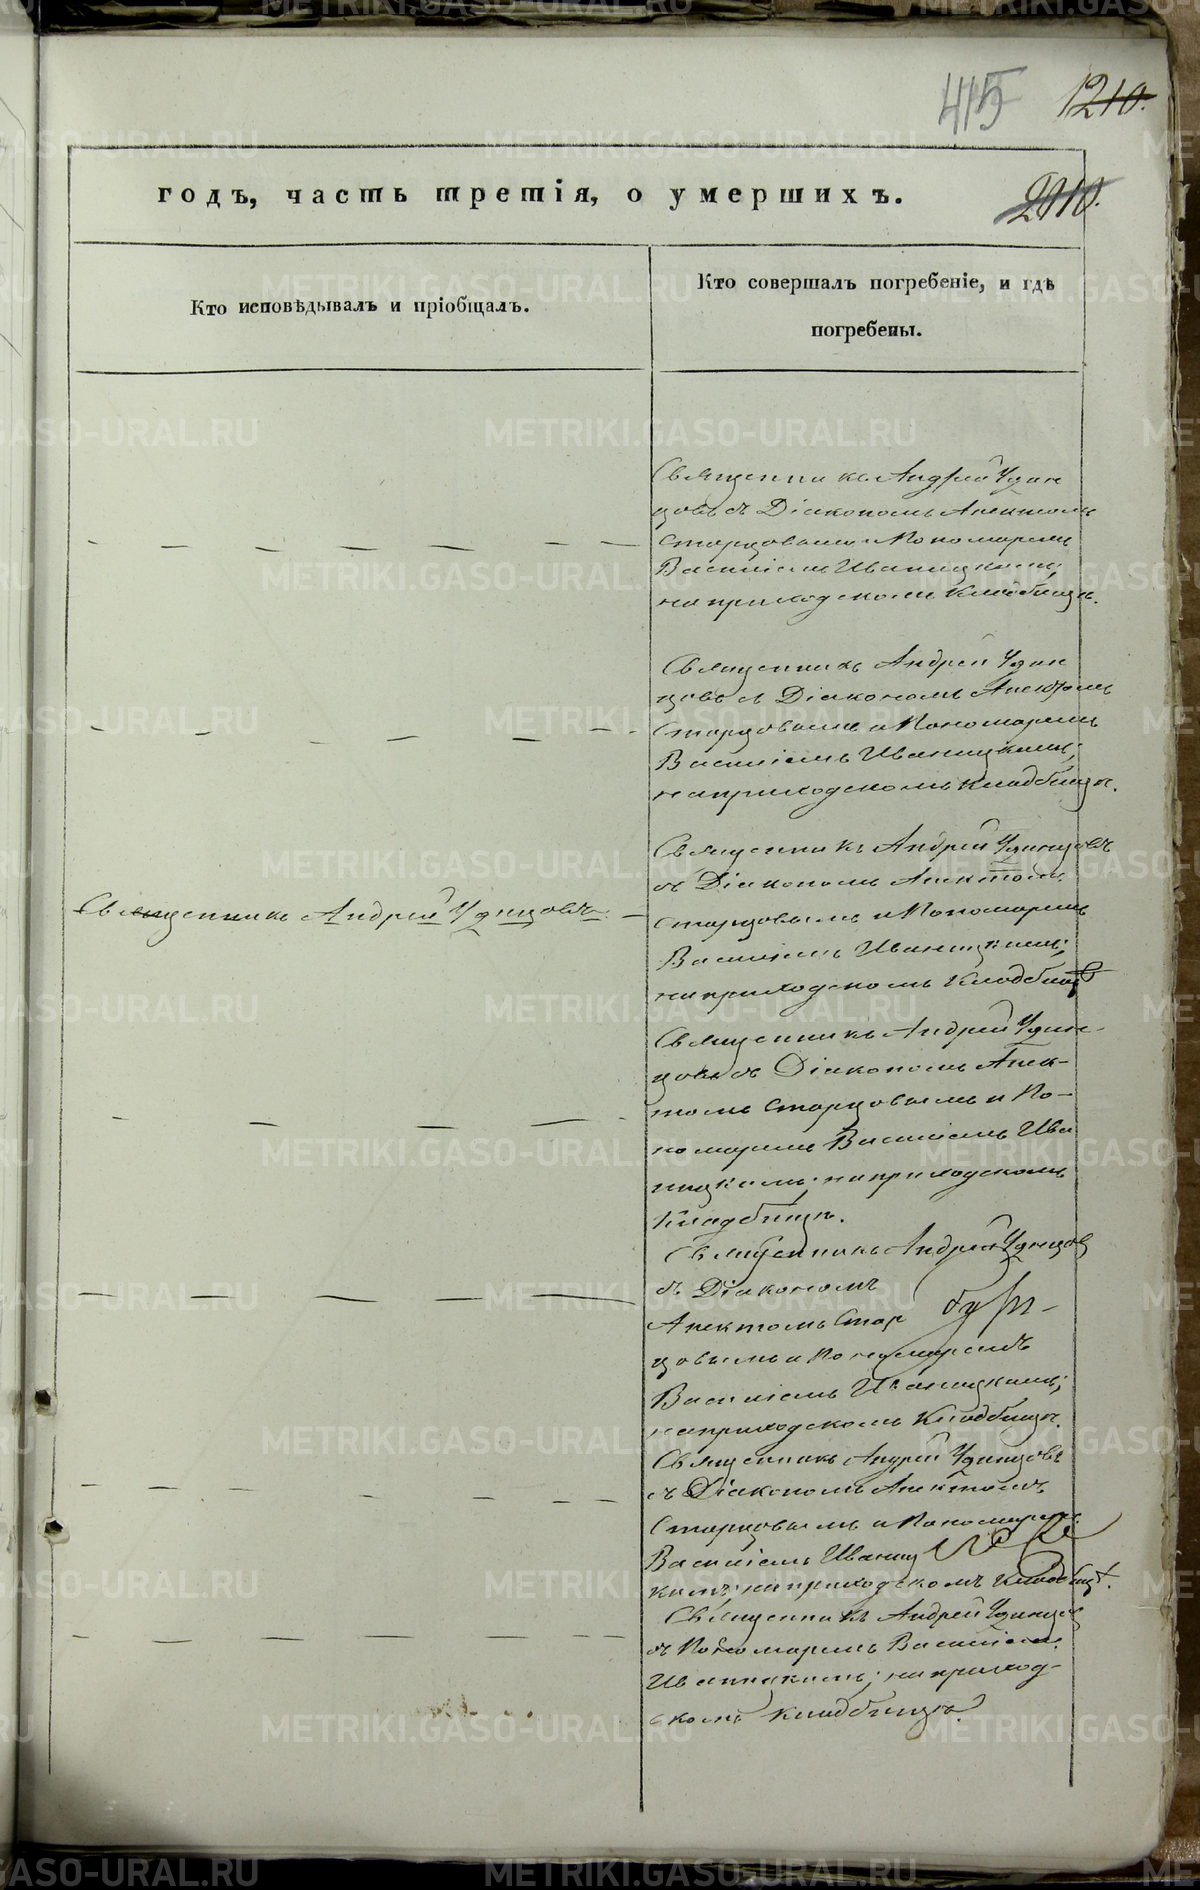 415 1210.
годъ, часть третія, о умершихъ.
2010.
Кто исповѣдывалъ и пріобщалъ.
Кто совершалъ погребеніе, и гдѣ
погребены.
Священникъ Андрей Удин
цовъ съ Діакономъ Анектомъ
Старцовымъ и Пономаремъ
Василіемъ Иваницкимъ;
на приходскомъ кладбищѣ.
Священникъ Андрей Удин
цовъ съ Діакономъ Анектомъ
Старцовымъ и Пономаремъ
Василіемъ Иваницкимъ;
на приходскомъ кладбищѣ.
Священникъ Андрей Удинцовъ
съ Діакономъ Анектомъ
Священникъ Андрей Удинцовъ.
Старцовымъ и Пономаремъ
Василіемъ Иваницкимъ;
на приходскомъ кладбищѣ
Священникъ Андрей Удин-
цовъ съ Діакономъ Анек-
томъ Старцовымъ и По-
номаремъ Василіемъ Ива
ницкимъ; на приходскомъ
кладбищѣ.
Священникъ Андрей Удинцов
съ Діакономъ
Анектомъ Стар
цовымъ и Пономаремъ
Василіемъ Иваницкимъ;
на приходскомъ кладбищѣ.
Священникъ Андрей Удинцовъ
съ Діакономъ Анектомъ
Старцовымъ и Пономаремъ
Василіемъ Иваниц
кимъ; на приходскомъ кладбищѣ.
Священникъ Андрей Удинцов
съ Пономаремъ Василіемъ
Иваницкимъ; на приход-
скомъ кладбищѣ.
METRIKI.GASO-URAL.RU